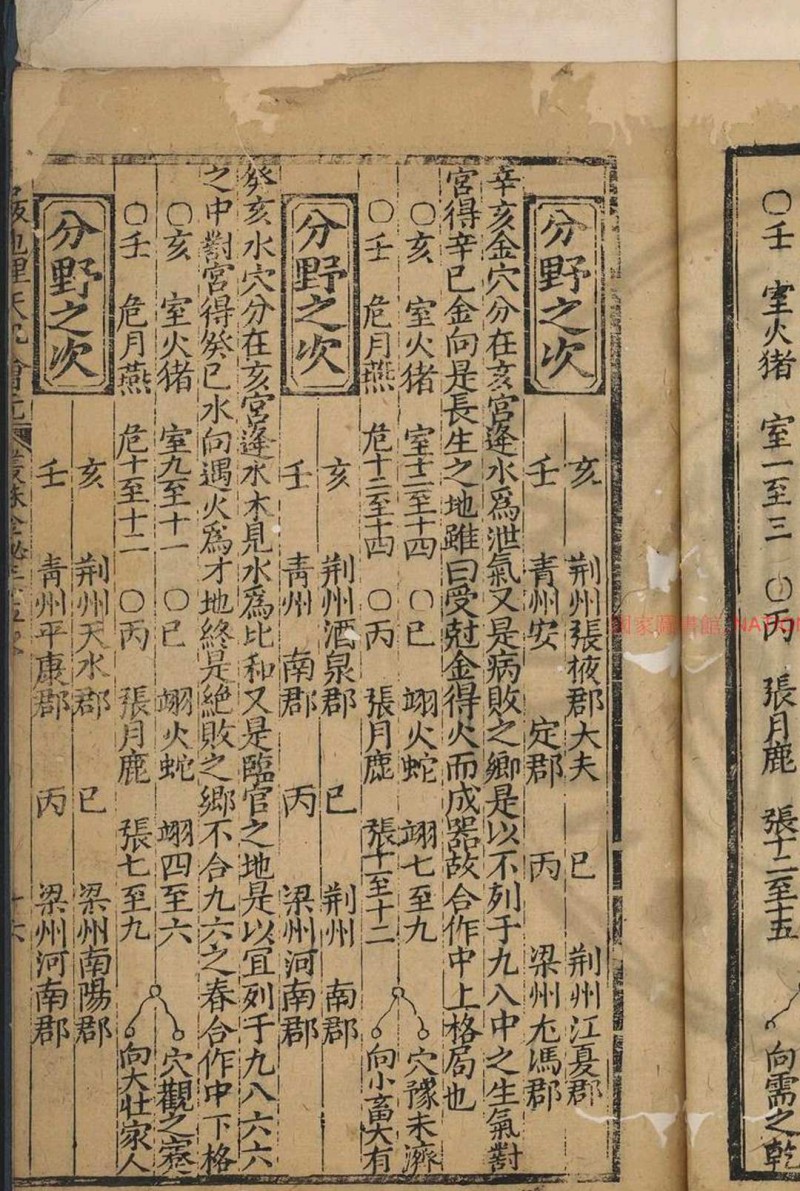 ○壬　室火猪　室一至三　○丙　張月鹿　張十二至十五　向需之乾
分野之次
亥　荆州張掖郡大夫　巳　荆州江夏郡
壬　青州安　定郡　丙　梁州尢馮郡
辛亥金穴分在亥宮逢水爲泄氣又是病敗之鄉是以不列于九八中之生氣對
宮得辛巳金向是長生之地雖曰受尅金得火而成器故合作中上格局也
○亥　室火猪　室十二至十四　○巳　翊火蛇　翊七至九　穴豫未濟
○壬　危月燕　危十三至十四　○丙　張月鹿　張十一至十二　向小畜大有
分野之次
亥　荆州酒泉郡　巳　荆州　南郡
壬　青州　南郡　丙　梁州河南郡
癸亥水穴分在亥宮逢水木見水爲比和又是臨官之地是以宜列于九八六六
之中對宮得癸巳水向遇火爲才地終是絶敗之鄉不合九六之春合作中下格
○亥　室火猪　室九至十一　○巳　翊火蛇　翊四至六　穴觀之蹇
○壬　危月燕　危十至十二　○丙　張月鹿　張七至九　向大壮家人
分野之次
亥　荆州天水郡　巳　梁州南陽郡
壬　青州平康郡　丙　梁州河南郡